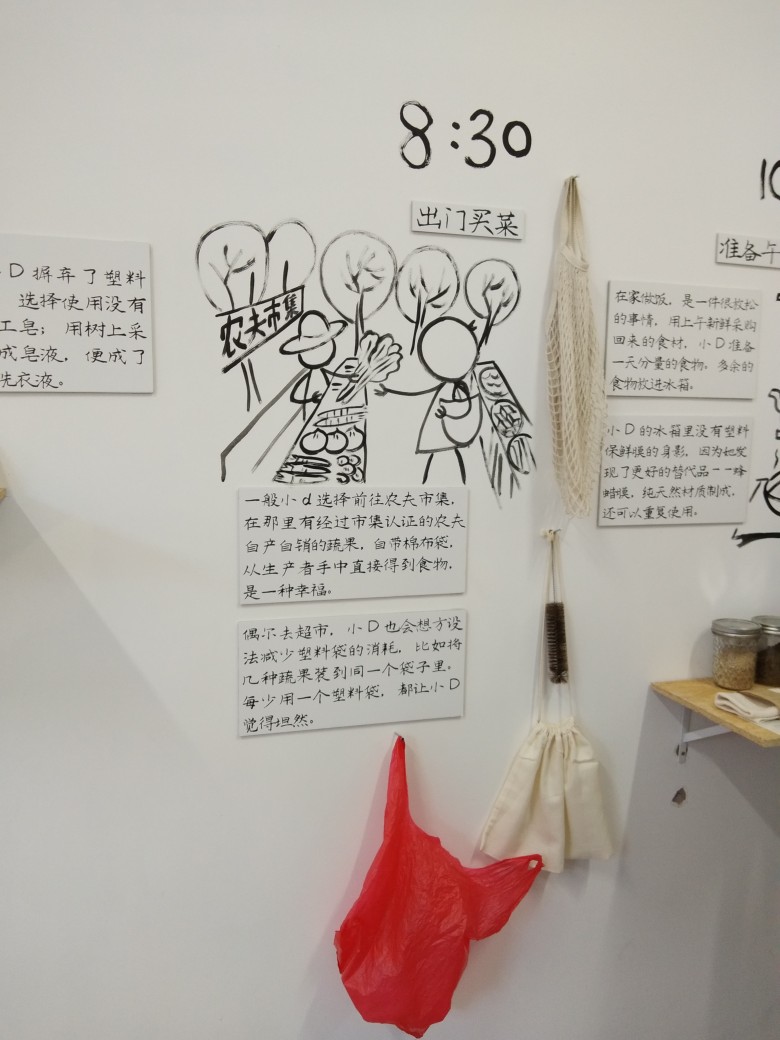 8:30
出门买菜
农夫市集
D 摒弃了塑料
选择使用没有
工皂；用树上采
成皂液，便成了
洗衣液。
一般小d选择前往农夫市集，
在那里有经过市集认证的农夫
自产自销的蔬果，自带棉布袋，
从生产者手中直接得到食物，
是一种幸福。
偶尔去超市，小D也会想方设
法减少塑料袋的消耗，比如将
几种蔬果装到同一个袋子里。
每少用一个塑料袋，都让小D
觉得坦然。
10
准备午
在家做饭，是一件很放松
的事情，用上午新鲜采购
回来的食材，小D准备
一天分量的食物，多余的
食物放进冰箱。
小D的冰箱里没有塑料
保鲜膜的身影，因为她发
现了更好的替代品－－蜂
蜡膜，纯天然材质制成，
还可以重复使用。